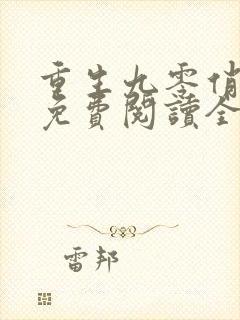 重生九零俏
免費閱讀全
雷邦